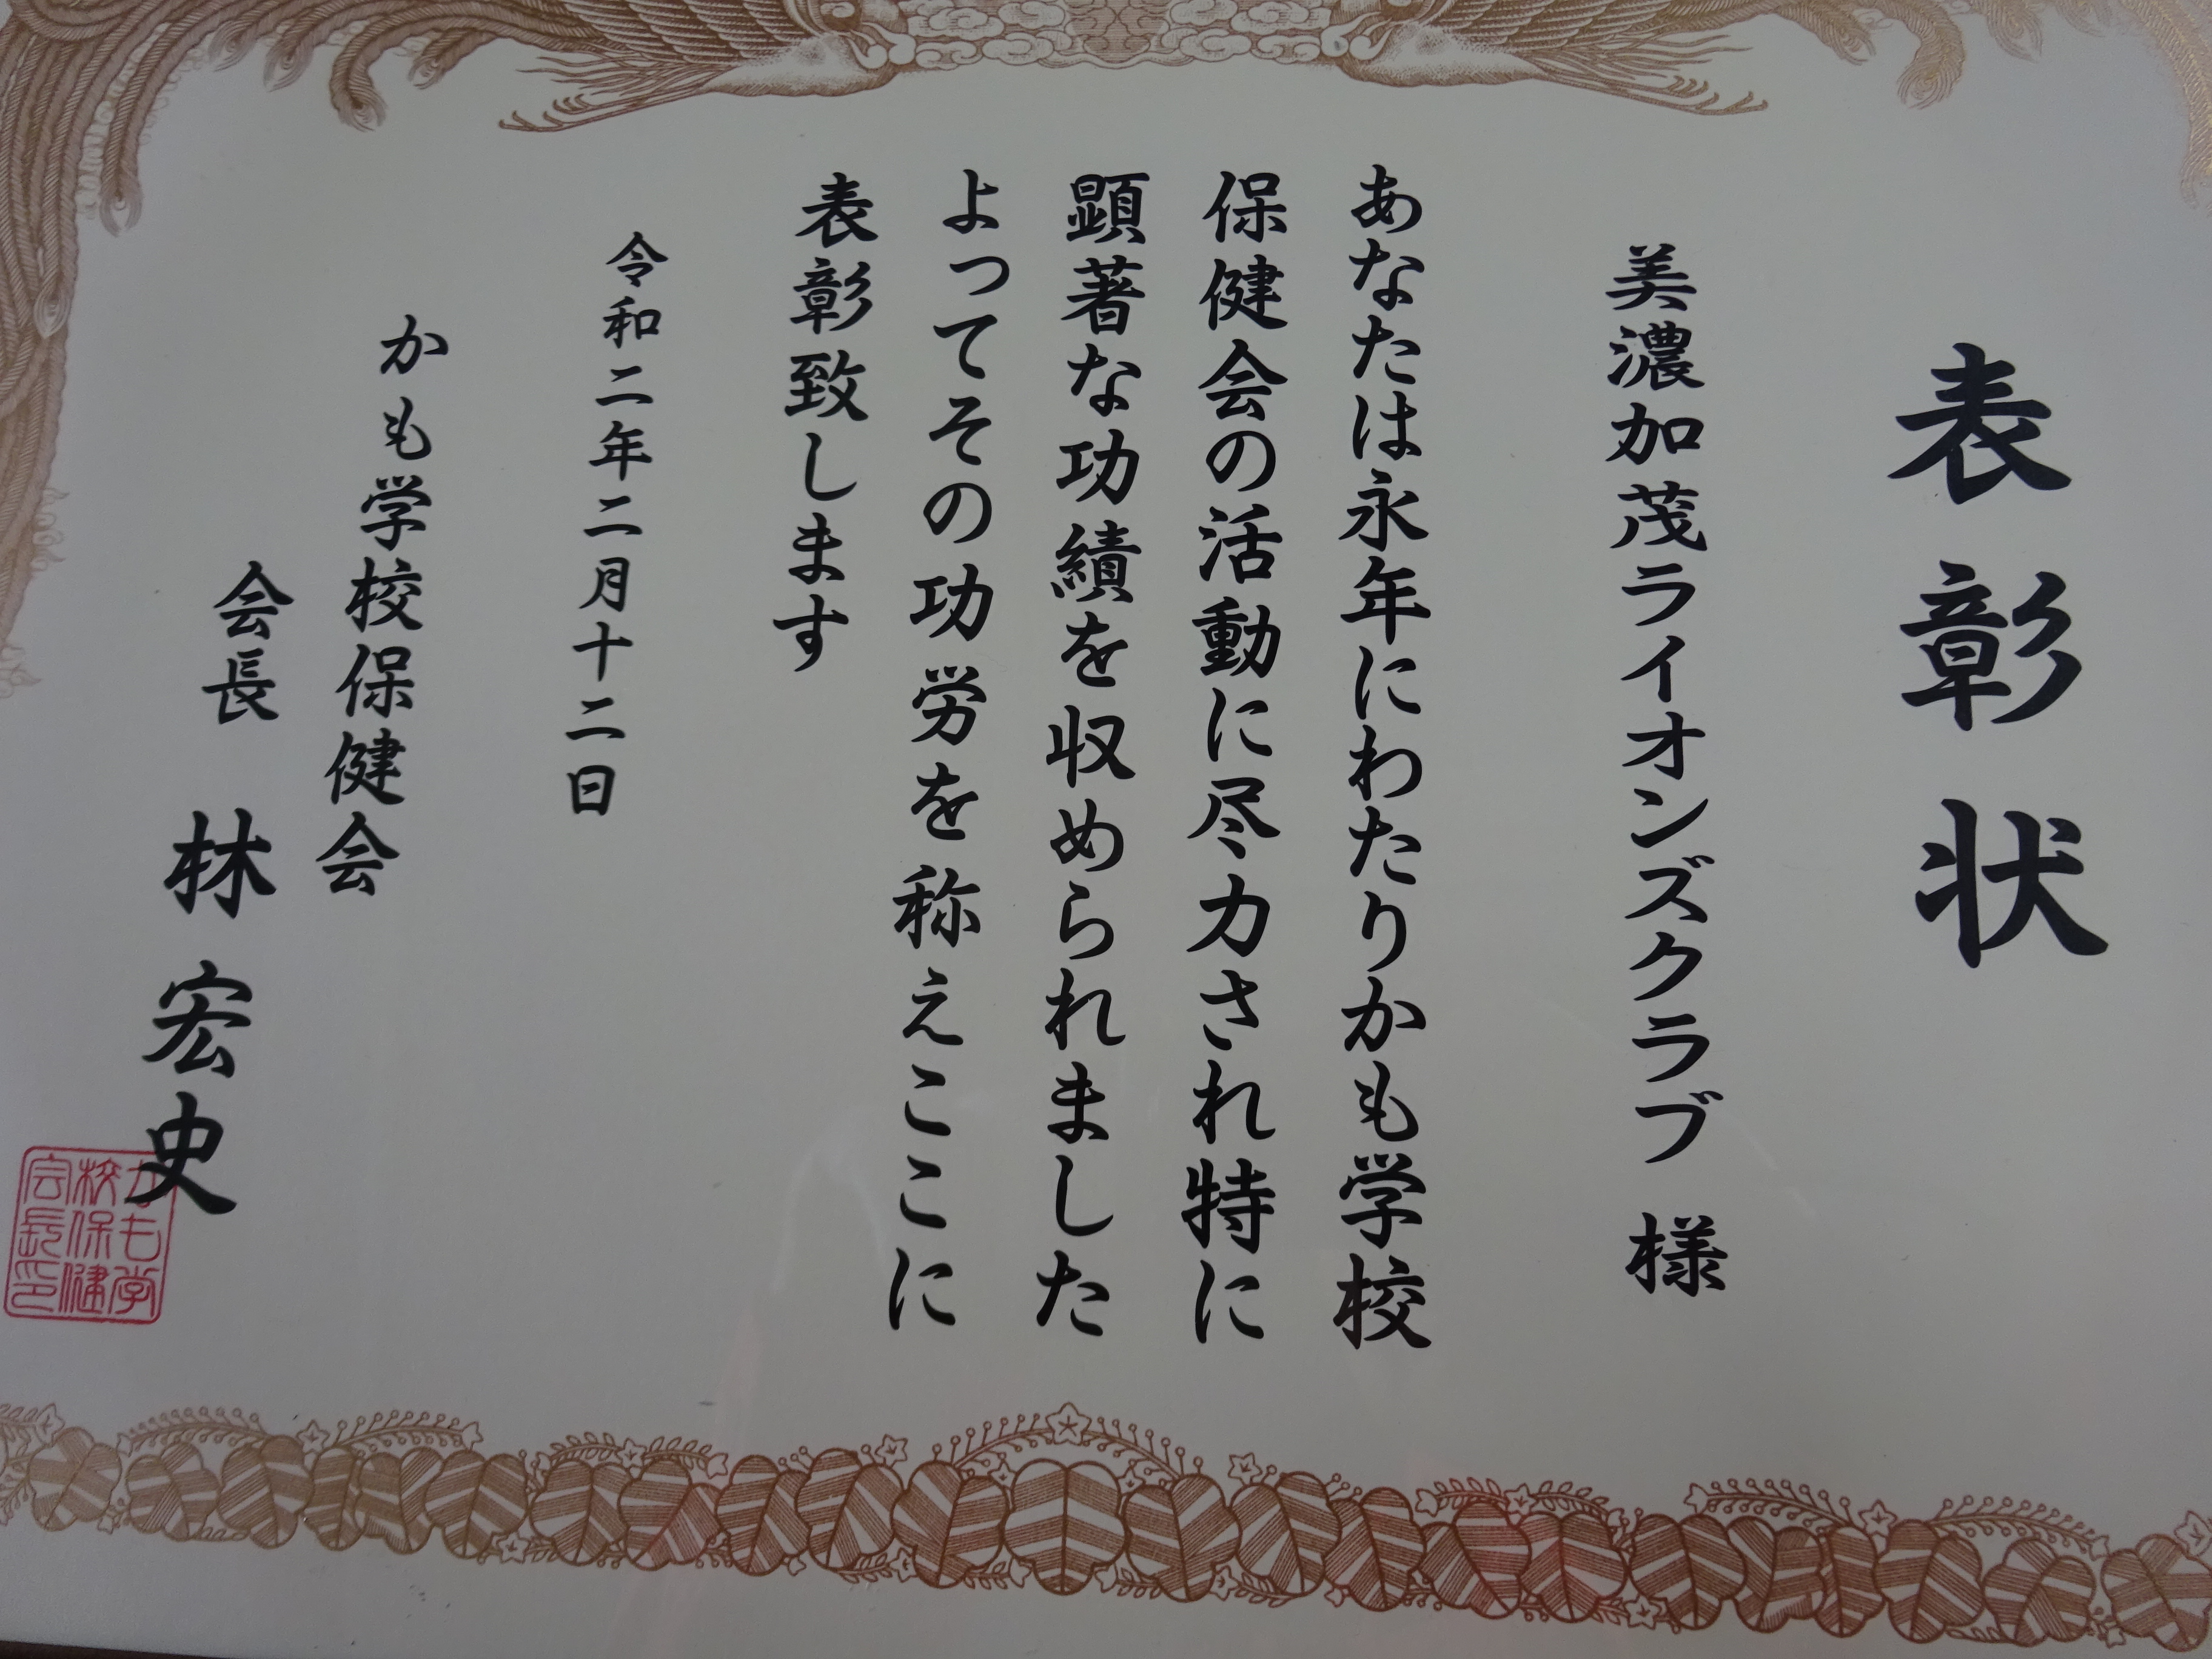 表彰状
美濃加茂ライオンズクラブ 様
あなたは永年にわたりかも学校
保健会の活動に尽力され特に
顕著な功績を収められました
よってその功労を称えここに
表彰致します
令和二年二月十二日
かも学校保健会
会長 林宏史
かも学
校保健
会長印